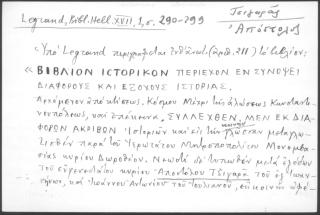 Legrand, Bibl. Hell. XVII, 1, σ. 290-299
Τσιγαρᾶς
Ἀπόστολος
Ὑπὸ Legrand περιγράφεται ἐνθάδε (ἀριθ. 211) τὸ βιβλίον:
« ΒΙΒΛΙΟΝ ΙΣΤΟΡΙΚΟΝ ΠΕΡΙΕΧΟΝ ΕΝ ΣΥΝΟΨΕΙ
ΔΙΑΦΟΡΟΥΣ ΚΑΙ ΕΞΟΧΟΥΣ ΙΣΤΟΡΙΑΣ.
Ἀρχόμενον ἀπὸ κτίσεως Κόσμου Μέχρι τῆς ἁλώσεως Κωνσταν-
τινουπόλεως, καὶ ἐπέκεινα. ΣΥΛΛΕΧΘΕΝ ΜΕΝ ΕΚ ΔΙΑ-
ΦΟΡΩΝ ΑΚΡΙΒΩΝ Ἱστοριῶν καὶ εἰς τὴν κοινὴν γλῶσσαν μεταγλω-
τισθὲν παρὰ τοῦ Ἱερωτάτου Μητροπολίτου Μονεμβα-
σίας κυρίου Δωροθέου. Νεωστὶ δὲ τυπωθὲν μετὰ ἐξόδων
τοῦ εὐγενεστάτου κυρίου Ἀποστόλου Τσιγαρᾶ τοῦ ἐξ Ἰωαν-
νίνων, καὶ Ἰωάννου Ἀντωνίου τοῦ Ἰουλιανοῦ,